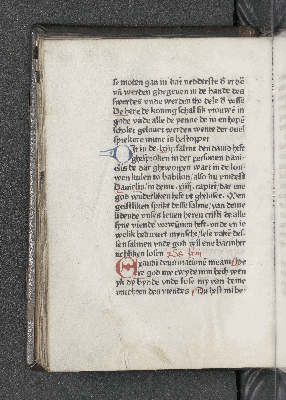 so moten gan in dat nedderste d erde
vn werden ghegeven in de hande des
swerdes vnde werden tho dele d vosse
De here de konnig schal sik vrouwen in
gode vnde alle de yenne de in em hopen
scholet gelovet werden wente der ovel
sprekere munt is bestoppet
It in de salme den david heft
ghesproken in der personen dani
elis de dar gheworpen wart in de lou
wen kulen to babilon also du vindest
Danielis in deme xiiij capitel dar eme
god wunderliken heft vt gheloset Men
geistliken sprikt desse salme van deme
lidende vnses leven heren cristi de alle
syne viende vorwunnen heft vnde en io
welik bedrovet mynsche lese vake des
sen salmen vnde god wil ene barmher
tichliken losen
Exaudi deus orationem meam
re god my bed wen
ik dy bydde vnde lose my van deme
vruchten des viendes Du hest mi be